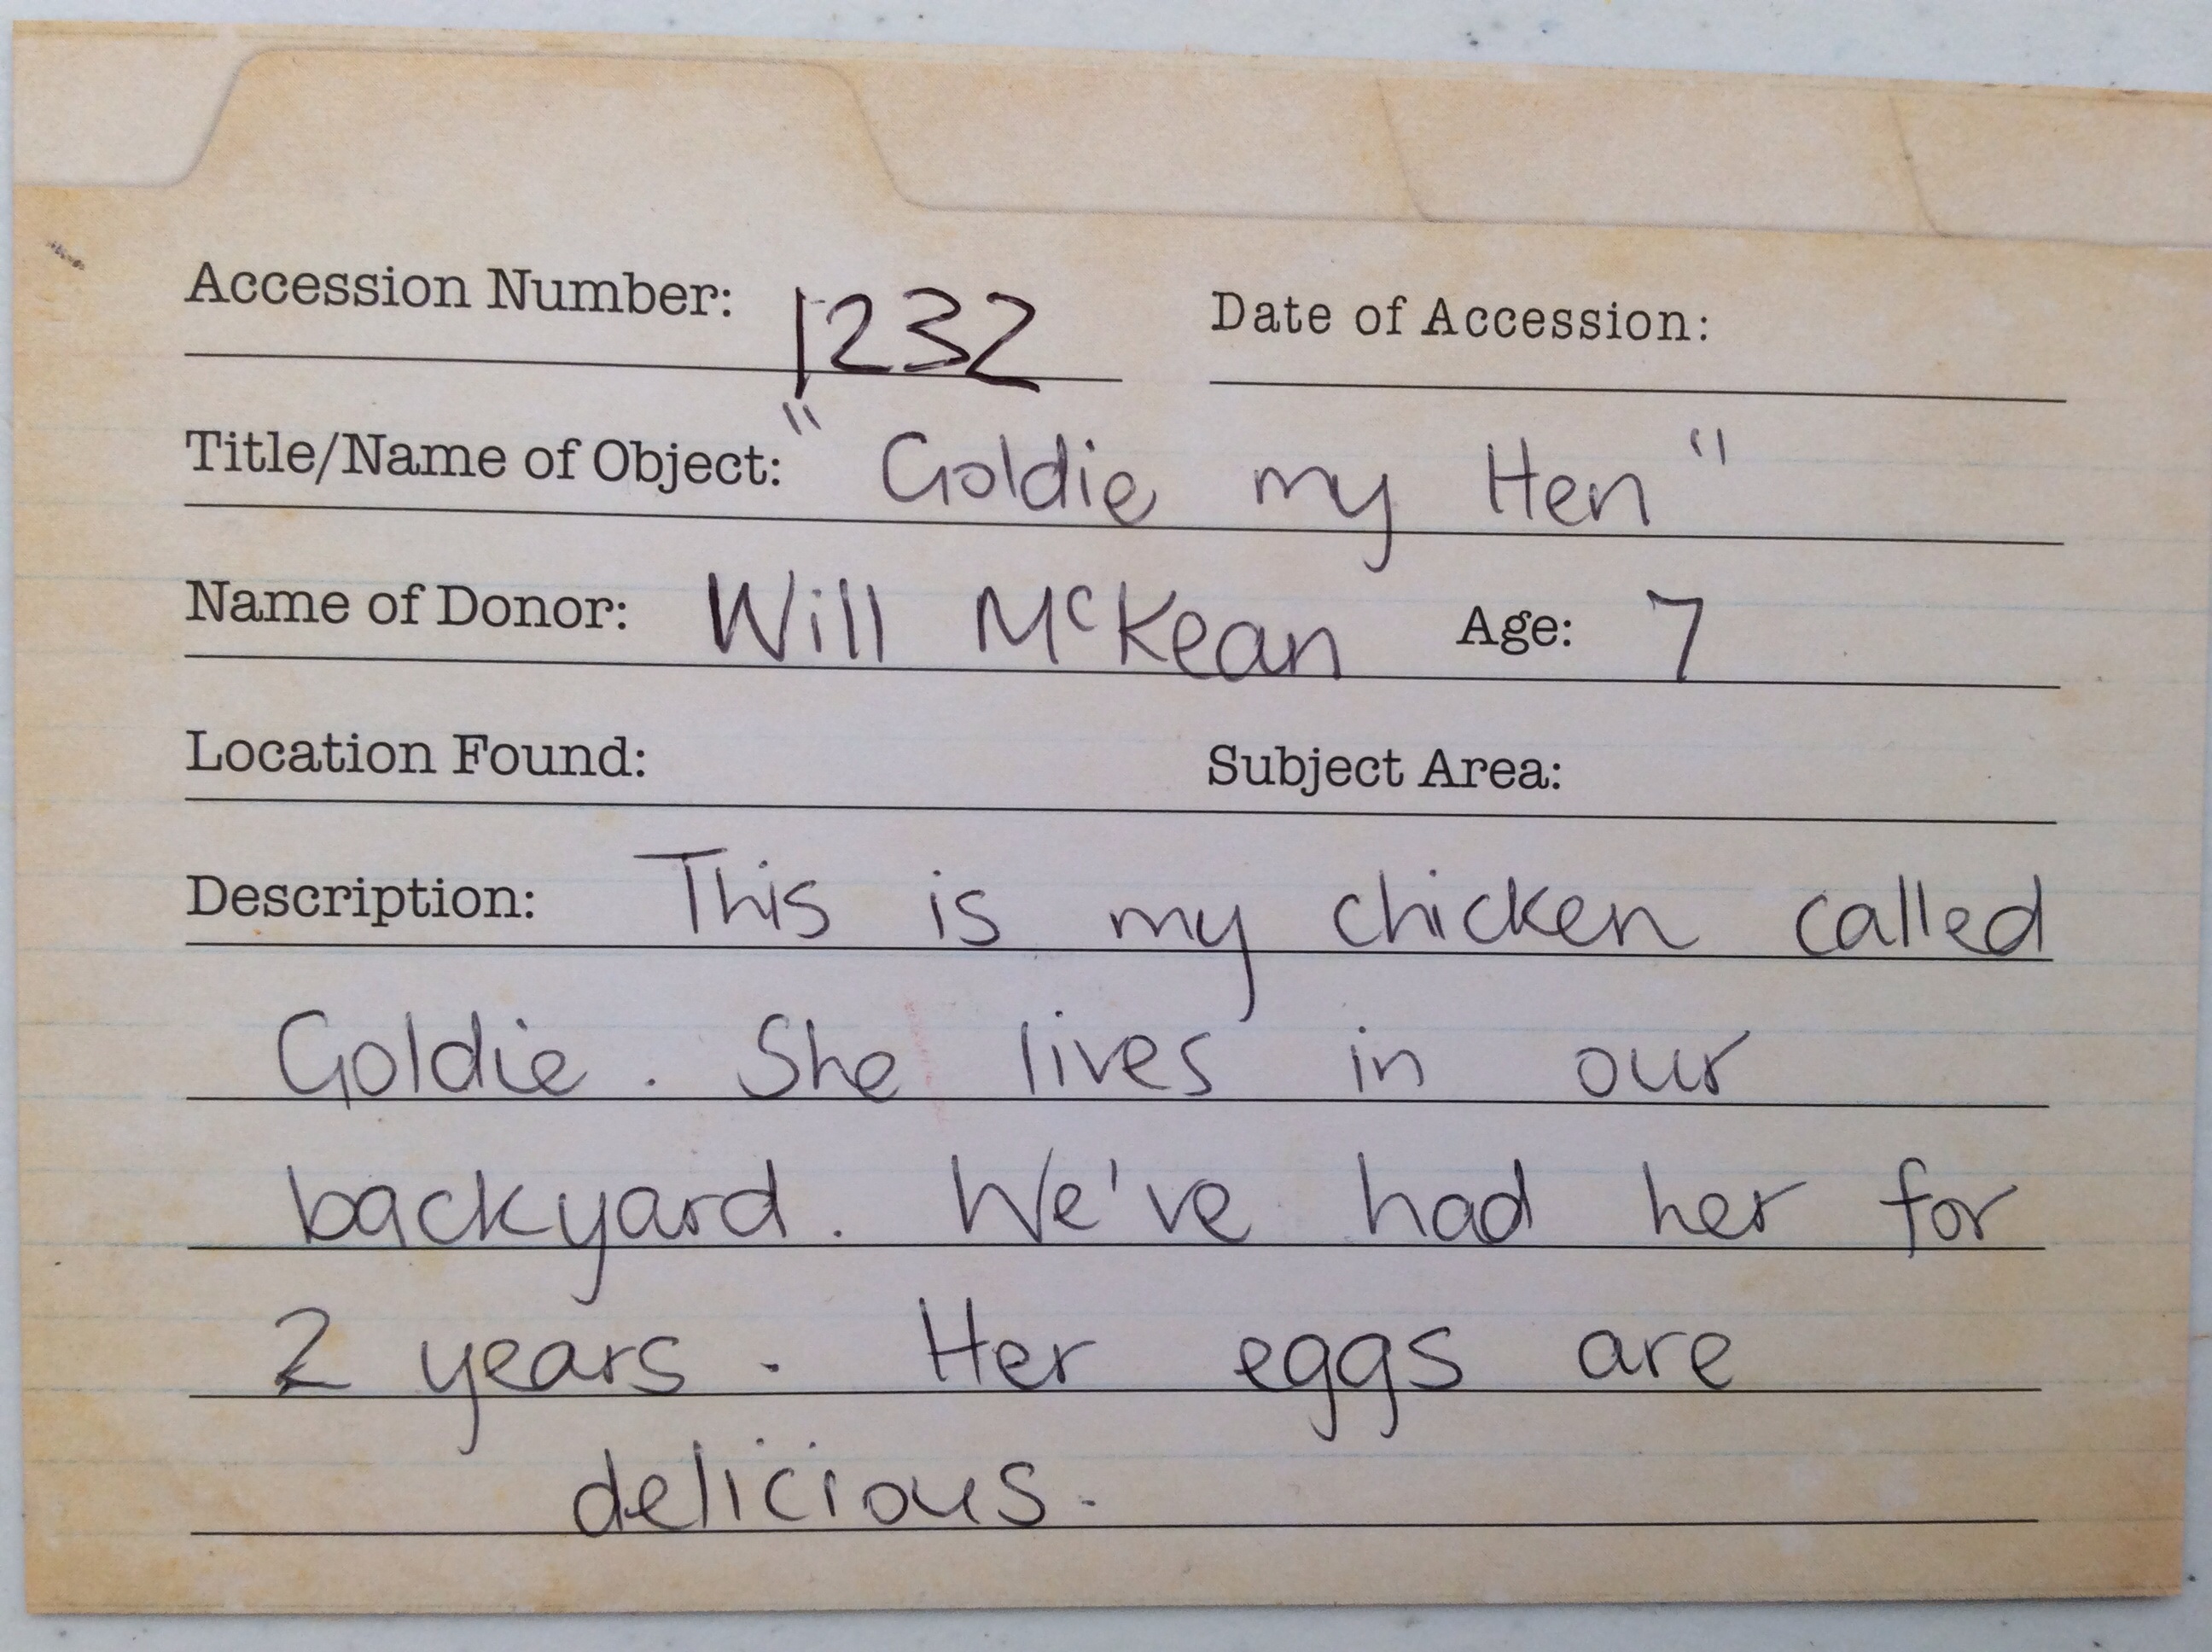 Accession Number: 1232 Date of Accession:
Title/Name of Object: "Goldie my Hen"
Name of Donor: Will McKean Age: 7
Location Found: Subject Area:
Description: This is my chicken called
Goldie. She lives in our
backyard. We've had her for
2 years. Her eggs are
delicious.